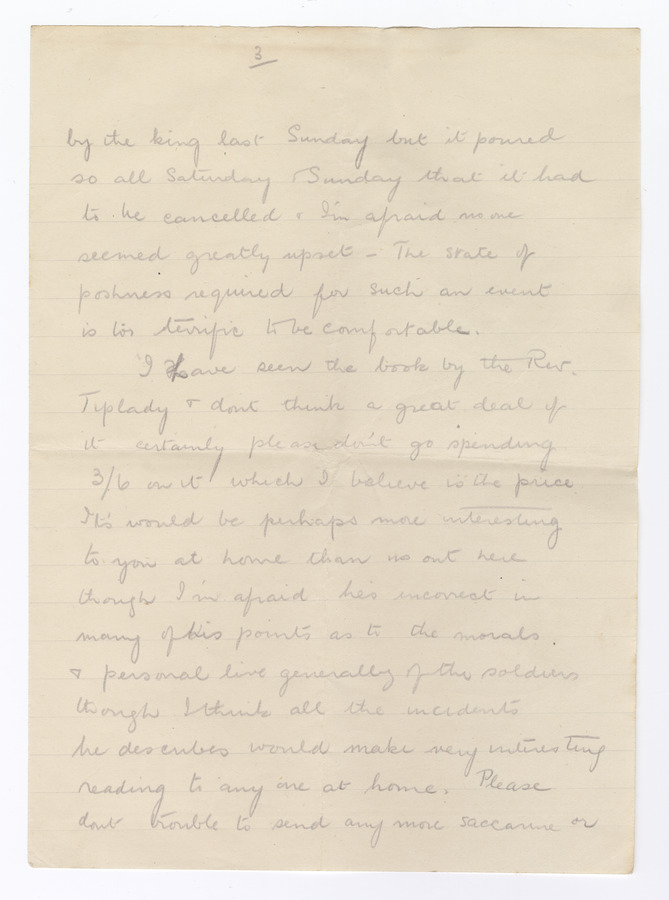 3
by the king last Sunday but it poured
so all Saturday & Sunday that it had
to be cancelled & I'm afraid no one
seemed greatly upset - The state of
poshness required for such an event
is too terrific to be comfortable.
I have seen the book by the Rev.
Tiplady & dont think a great deal of
it certainly please don't go spending
3/6 on it which I believe is the price
It's would be perhaps more interesting
to you at home than us out here
though I'm afraid he's incorrect in
many of his points as to the morals
& personal live generally of the soldiers
though I think all the incidents
he describes would make very interesting
reading to any one at home. Please
dont trouble to send any more saccarine or